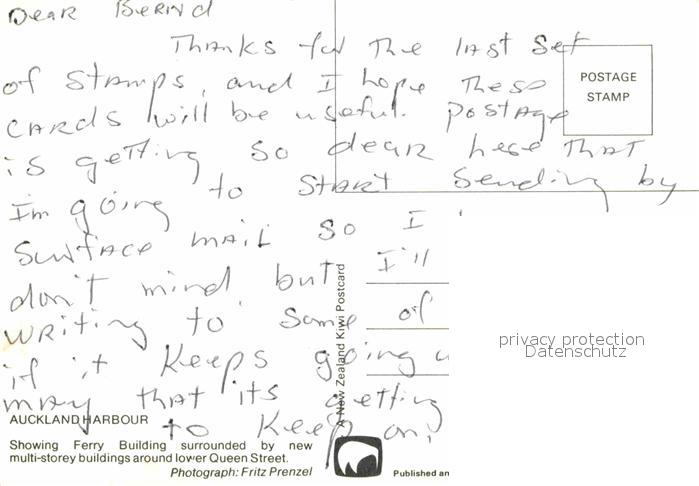 Dear Bernd
Thanks for the last set
of stamps, and I hope these
cards will be useful. Postage
is getting so dear here that
Im going to start sending by
surface mail so I
don't mind, but I'll
writing to some of
if it keeps going u
may that its getting
to keep on,
POSTAGE
STAMP
AUCKLAND HARBOUR
Showing Ferry Building surrounded by new
multi-storey buildings around lower Queen Street.
Photograph: Fritz Prenzel
A New Zealand Kiwi Postcard
Published an
privacy protection
Datenschutz